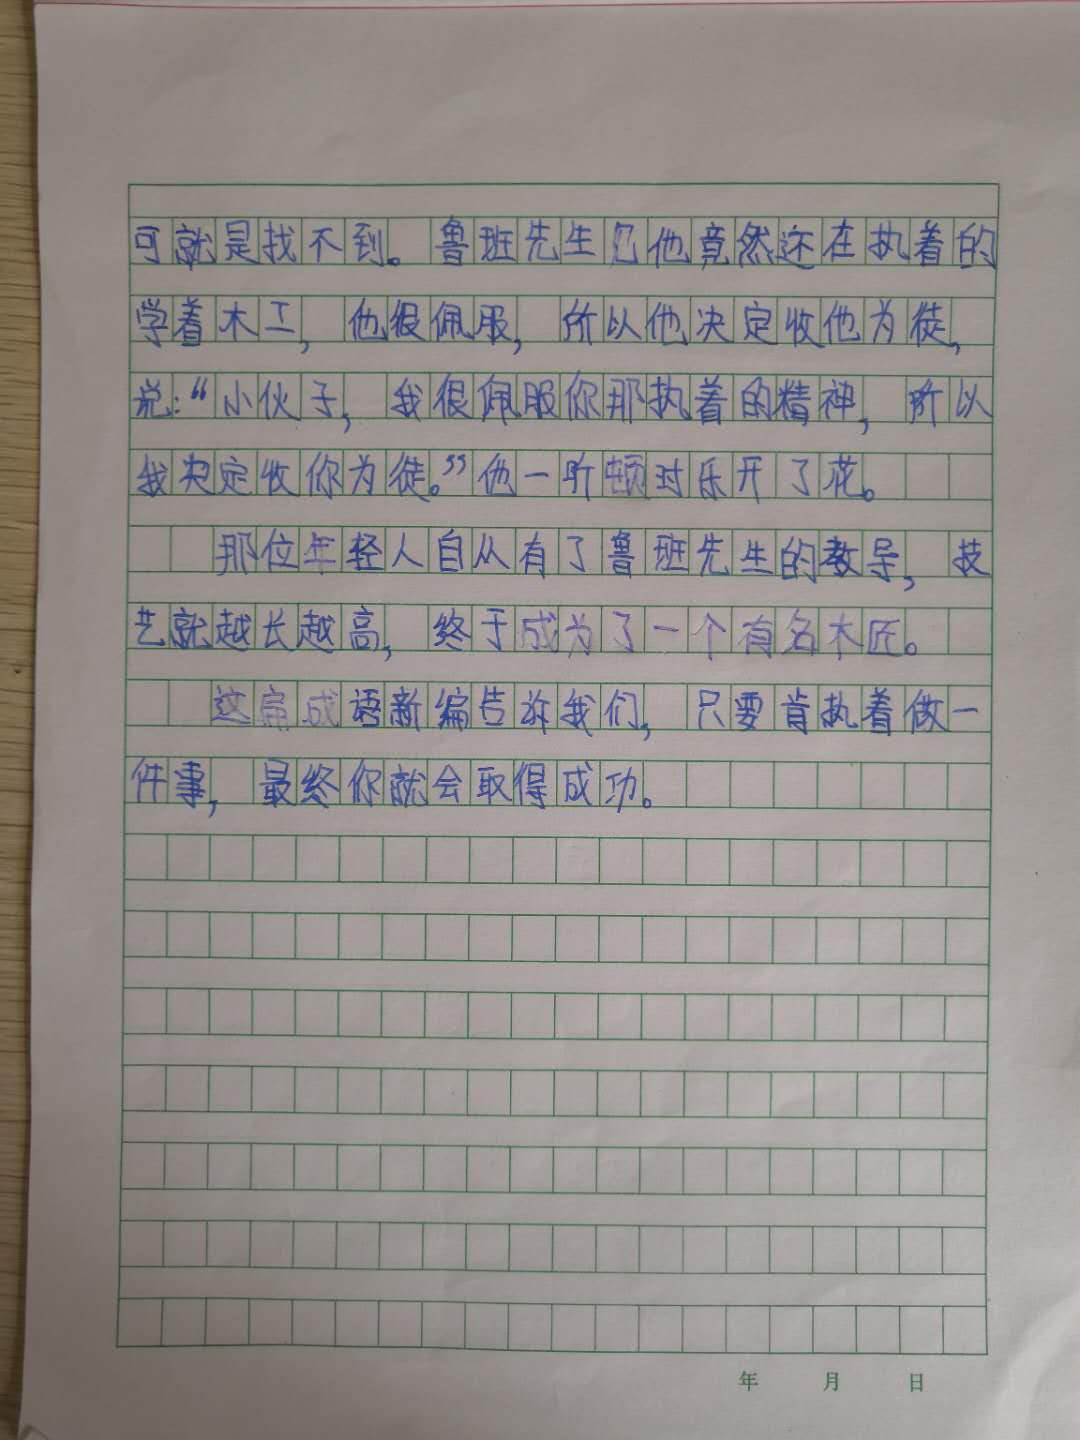 可就是找不到。鲁班先生见他竟然还在执着的
学着木工，他很佩服，所以他决定收他为徒，
说：“小伙子，我很佩服你那执着的精神，所以
我决定收你为徒。”他一听顿时乐开了花。
那位年轻人自从有了鲁班先生的教导，技
艺就越长越高，终于成为了一个有名木匠。
这篇成语新编告诉我们，只要肯执着做一
件事，最终你就会取得成功。
年 月 日